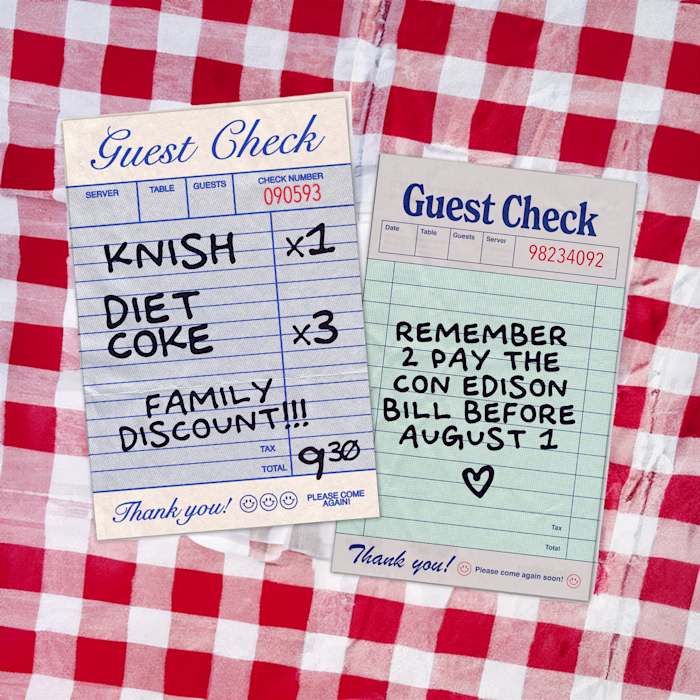 Guest Check
SERVER TABLE GUESTS CHECK NUMBER
090593
KNISH x1
DIET
COKE x3
FAMILY
DISCOUNT!!!
TAX
TOTAL 930
Thank you! PLEASE COME
AGAIN!
Guest Check
Date Table Guests Server
98234092
REMEMBER
2 PAY THE
CON EDISON
BILL BEFORE
AUGUST 1
Tax
Total
Thank you! Please come again soon!